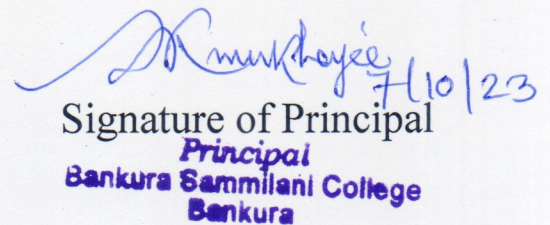 SKmukhojee
7/10/23
Signature of Principal
Principal
Bankura Sammilani College
Bankura